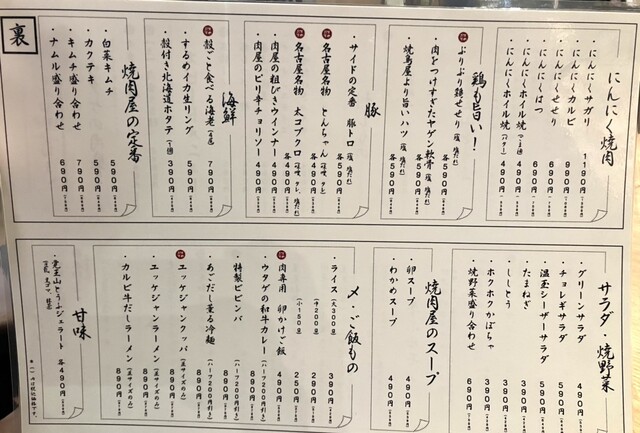 裏
にんにく焼肉
・にんにくサガリ 1190円
・にんにくカルビ 990円
・にんにくせせり 690円
・にんにくはつ 690円
・にんにくホイル焼
・にんにくホイル焼(バター) 490円
鶏も旨い!
・ぷりぷり鶏せせり 各590円
・肉をつけすぎたヤゲン軟骨 各590円
・焼鳥屋より旨いハツ 各590円
豚
・サイドの定番 豚トロ 各590円
・名古屋名物 とんちゃん 各490円
・名古屋名物 太コブクロ 各490円
・肉屋の粗びきウインナー 490円
・肉屋のピリ辛チョリソー 490円
海鮮
・殻ごと食べる海老 790円
・するめイカ生リング 590円
・殻付き北海道ホタテ 390円
焼肉屋の定番
・白菜キムチ 590円
・カクテキ 590円
・キムチ盛り合わせ 790円
・ナムル盛り合わせ 690円
サラダ・焼野菜
・グリーンサラダ 490円
・チョレギサラダ 590円
・温玉シーザーサラダ 590円
・たまねぎ 390円
・ししとう 390円
・ホクホクかぼちゃ 390円
・焼野菜盛り合わせ 690円
焼肉屋のスープ
・卵スープ 490円
・わかめスープ 490円
〆・ご飯もの
・ライス(大300g) 390円
(中200g) 290円
(小150g) 250円
・肉専用 卵かけご飯 490円
・ウタゲの和牛カレー(ハーフ200円引き) 890円
・特製ビビンバ(ハーフ200円引き) 890円
・あごだし薫る冷麺(ハーフ200円引き) 890円
・ユッケジャンクッパ 890円
・ユッケジャンラーメン 890円
・カルビ牛だしラーメン 890円
甘味
各490円